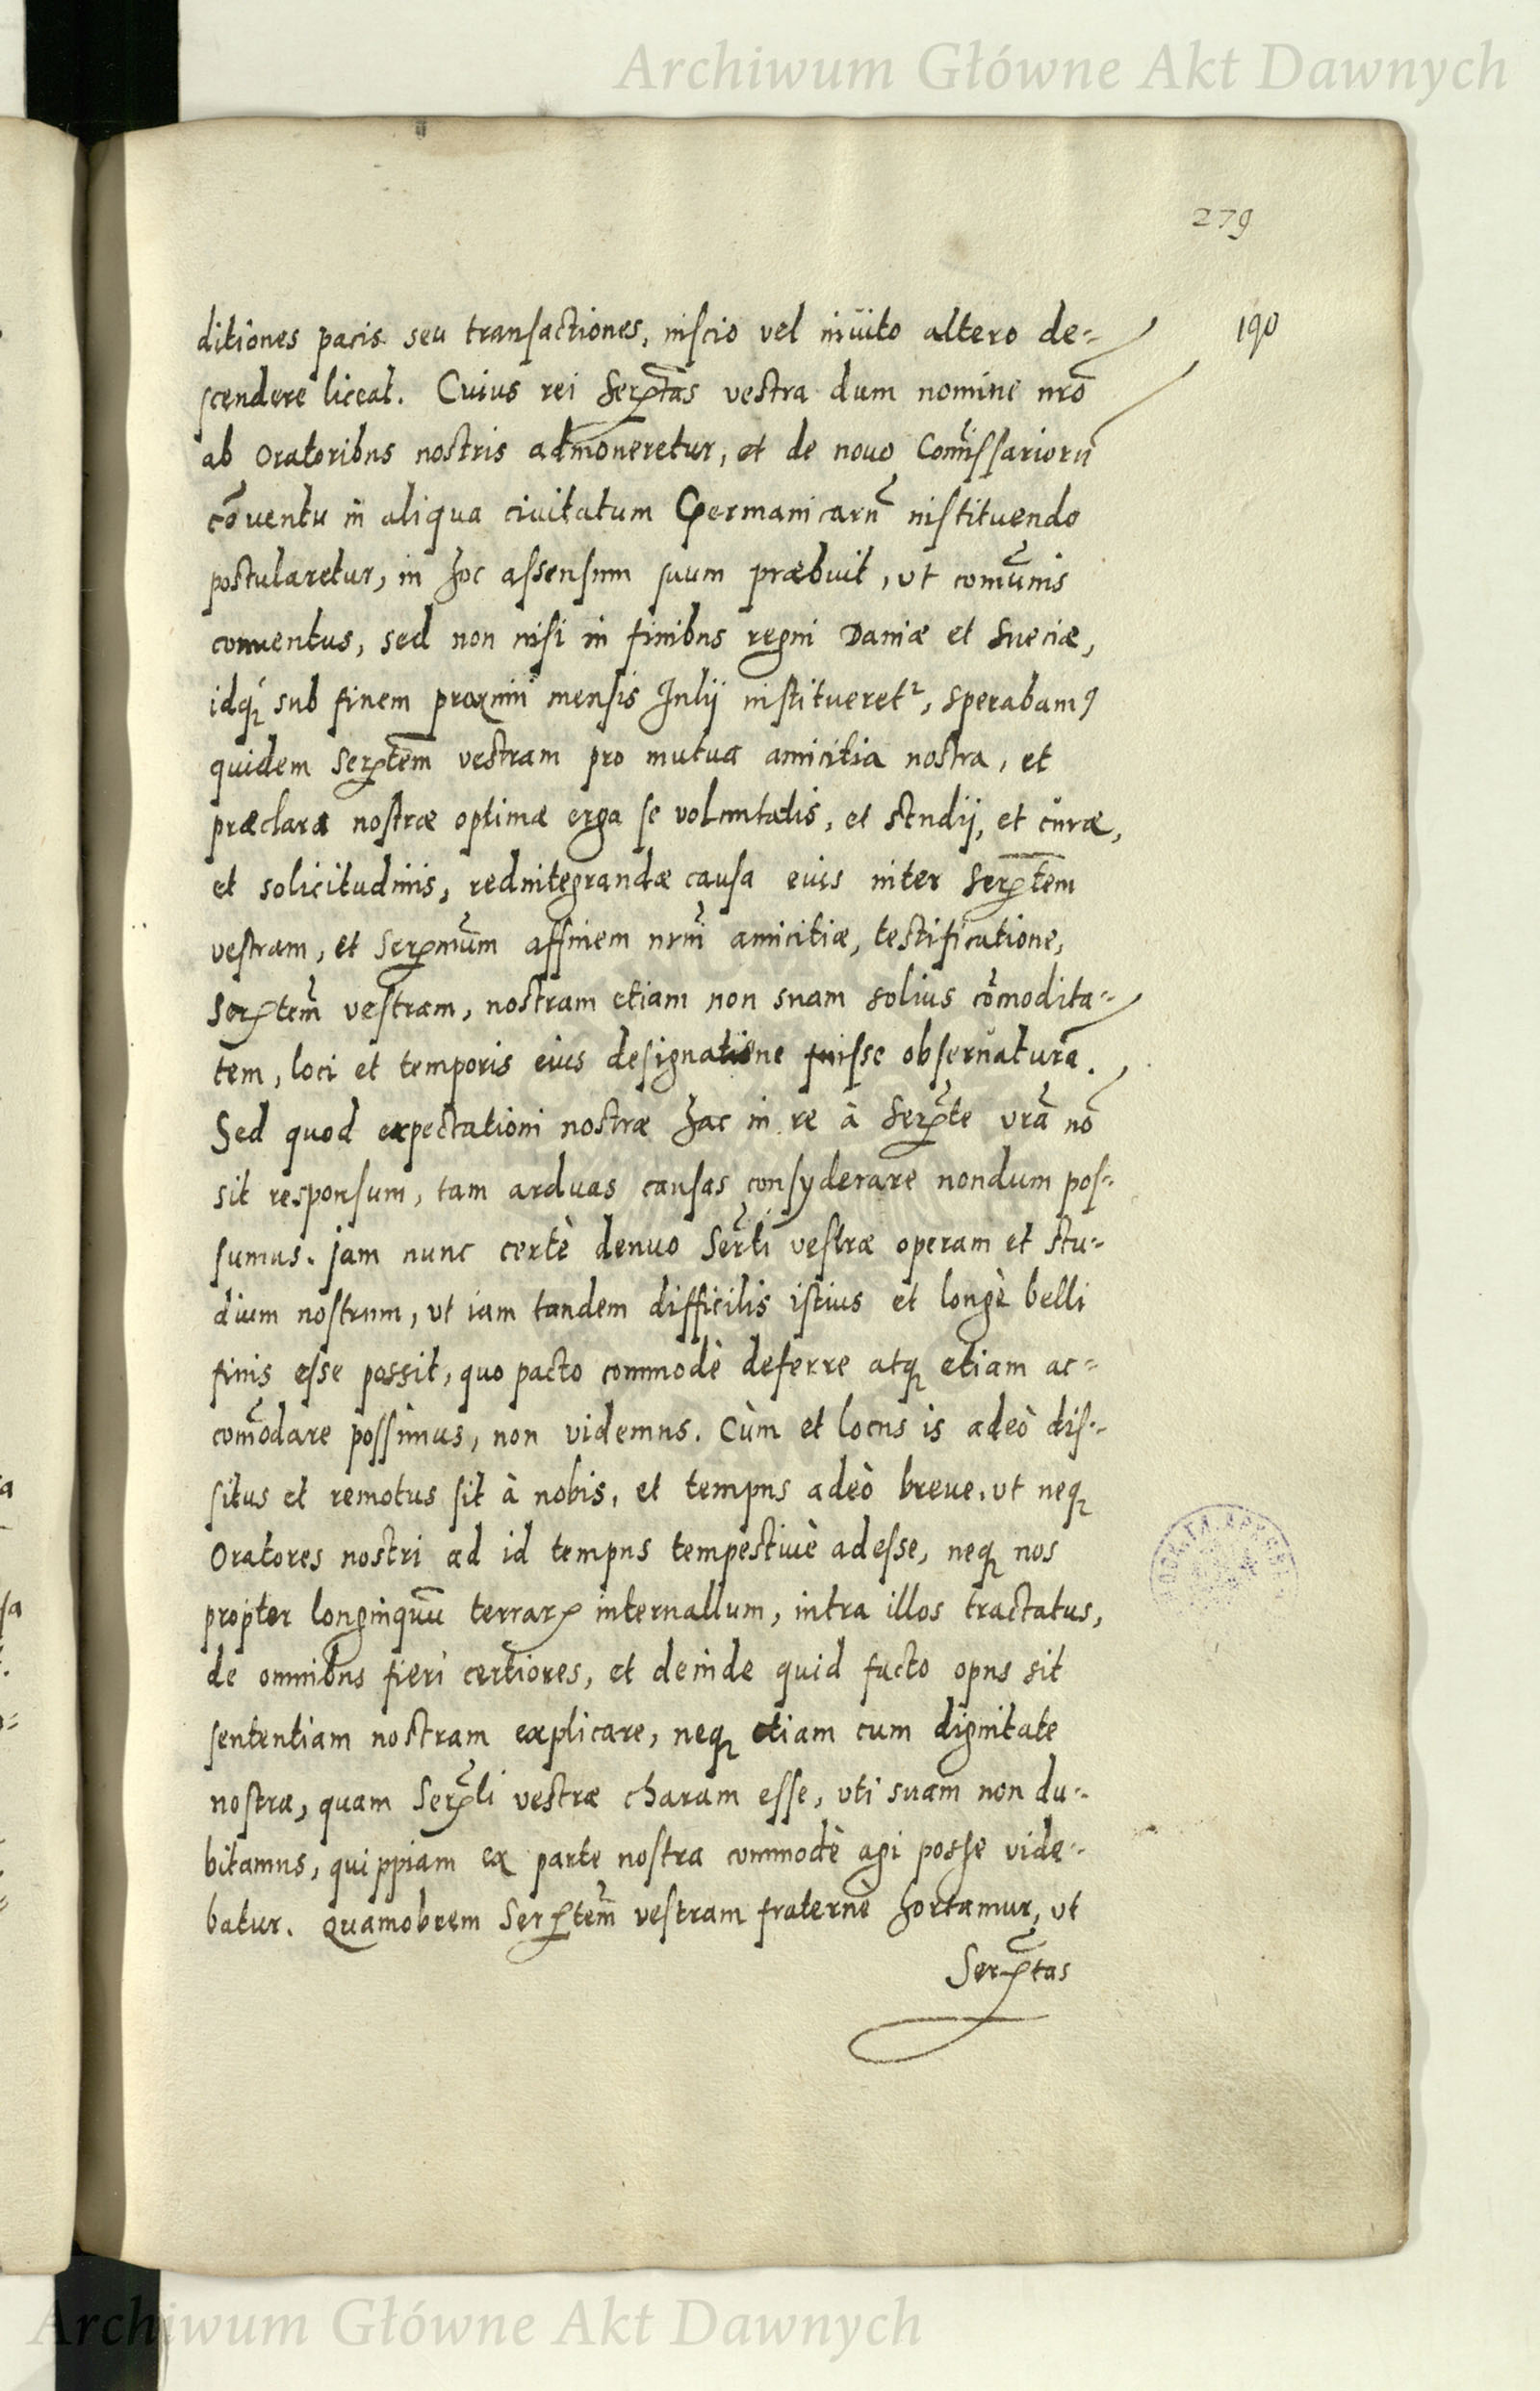 Archiwum Główne Akt Dawnych
279
190
ditiones pacis seu transactiones, inscio vel inuito altero de=
scendere liceat. Cuius rei Serp̃tas vestra dum nomine nrõ
ab Oratoribus nostris admoneretur, et de nouo Com̃issariorũ
cõuentu in aliqua ciuitatum Germanicarũ instituendo
postularetur, in hoc assensum suum præbuit, ut comũnis
conuentus, sed non nisi in finibus regni Daniæ et Sueciæ,
idq́ꝫ sub finem proximi mensis Julij institueretʳ, sperabamꝰ
quidem Serp̃tem vestram pro mutua amicitia nostra, et
præclara nostræ optimæ erga se voluntatis, et studij, et curæ,
et solicitudinis, redintegrandæ causa eius inter Serp̃tem
vestram, et Serp̃mũm affinem nrm̃ amicitiæ, testificatione,
Serp̃tem̃ vestram, nostram etiam non suam solius cõmodita=
tem, loci et temporis eius designatione fuisse obseruaturã.
Sed quod expectationi nostræ hac in re à Serp̃te vrã nõ
sit responsum, tam arduas causas consyderare nondum pos=
sumus. Jam nunc certè denuo Serti̋ vestræ operam et stu=
dium nostrum, ut iam tandem difficilis istius et longè belli
finis esse possit, quo pacto commodè deferre atqꝫ etiam ac=
com̃odare possimus, non videmus. Cùm et locus is adeò dis=
situs et remotus sit à nobis, et tempus adeò breue, ut neqꝫ
Oratores nostri ad id tempus tempestiuè adesse, neqꝫ nos
propter longinquũ terrarꝝ interuallum, intra illos tractatus,
de omnibus fieri certiores, et deinde quid facto opus sit
sententiam nostram explicare, neqꝫ etiam cum dignitate
nostra, quam Serp̃ti vestræ charam esse, uti suam non du=
bitamus, quippiam ex parte nostra commodè agi posse vide=
batur. Quamobrem Serp̃tem̃ vestram fraternè hortamur, ut
Serp̃tas
Archiwum Główne Akt Dawnych